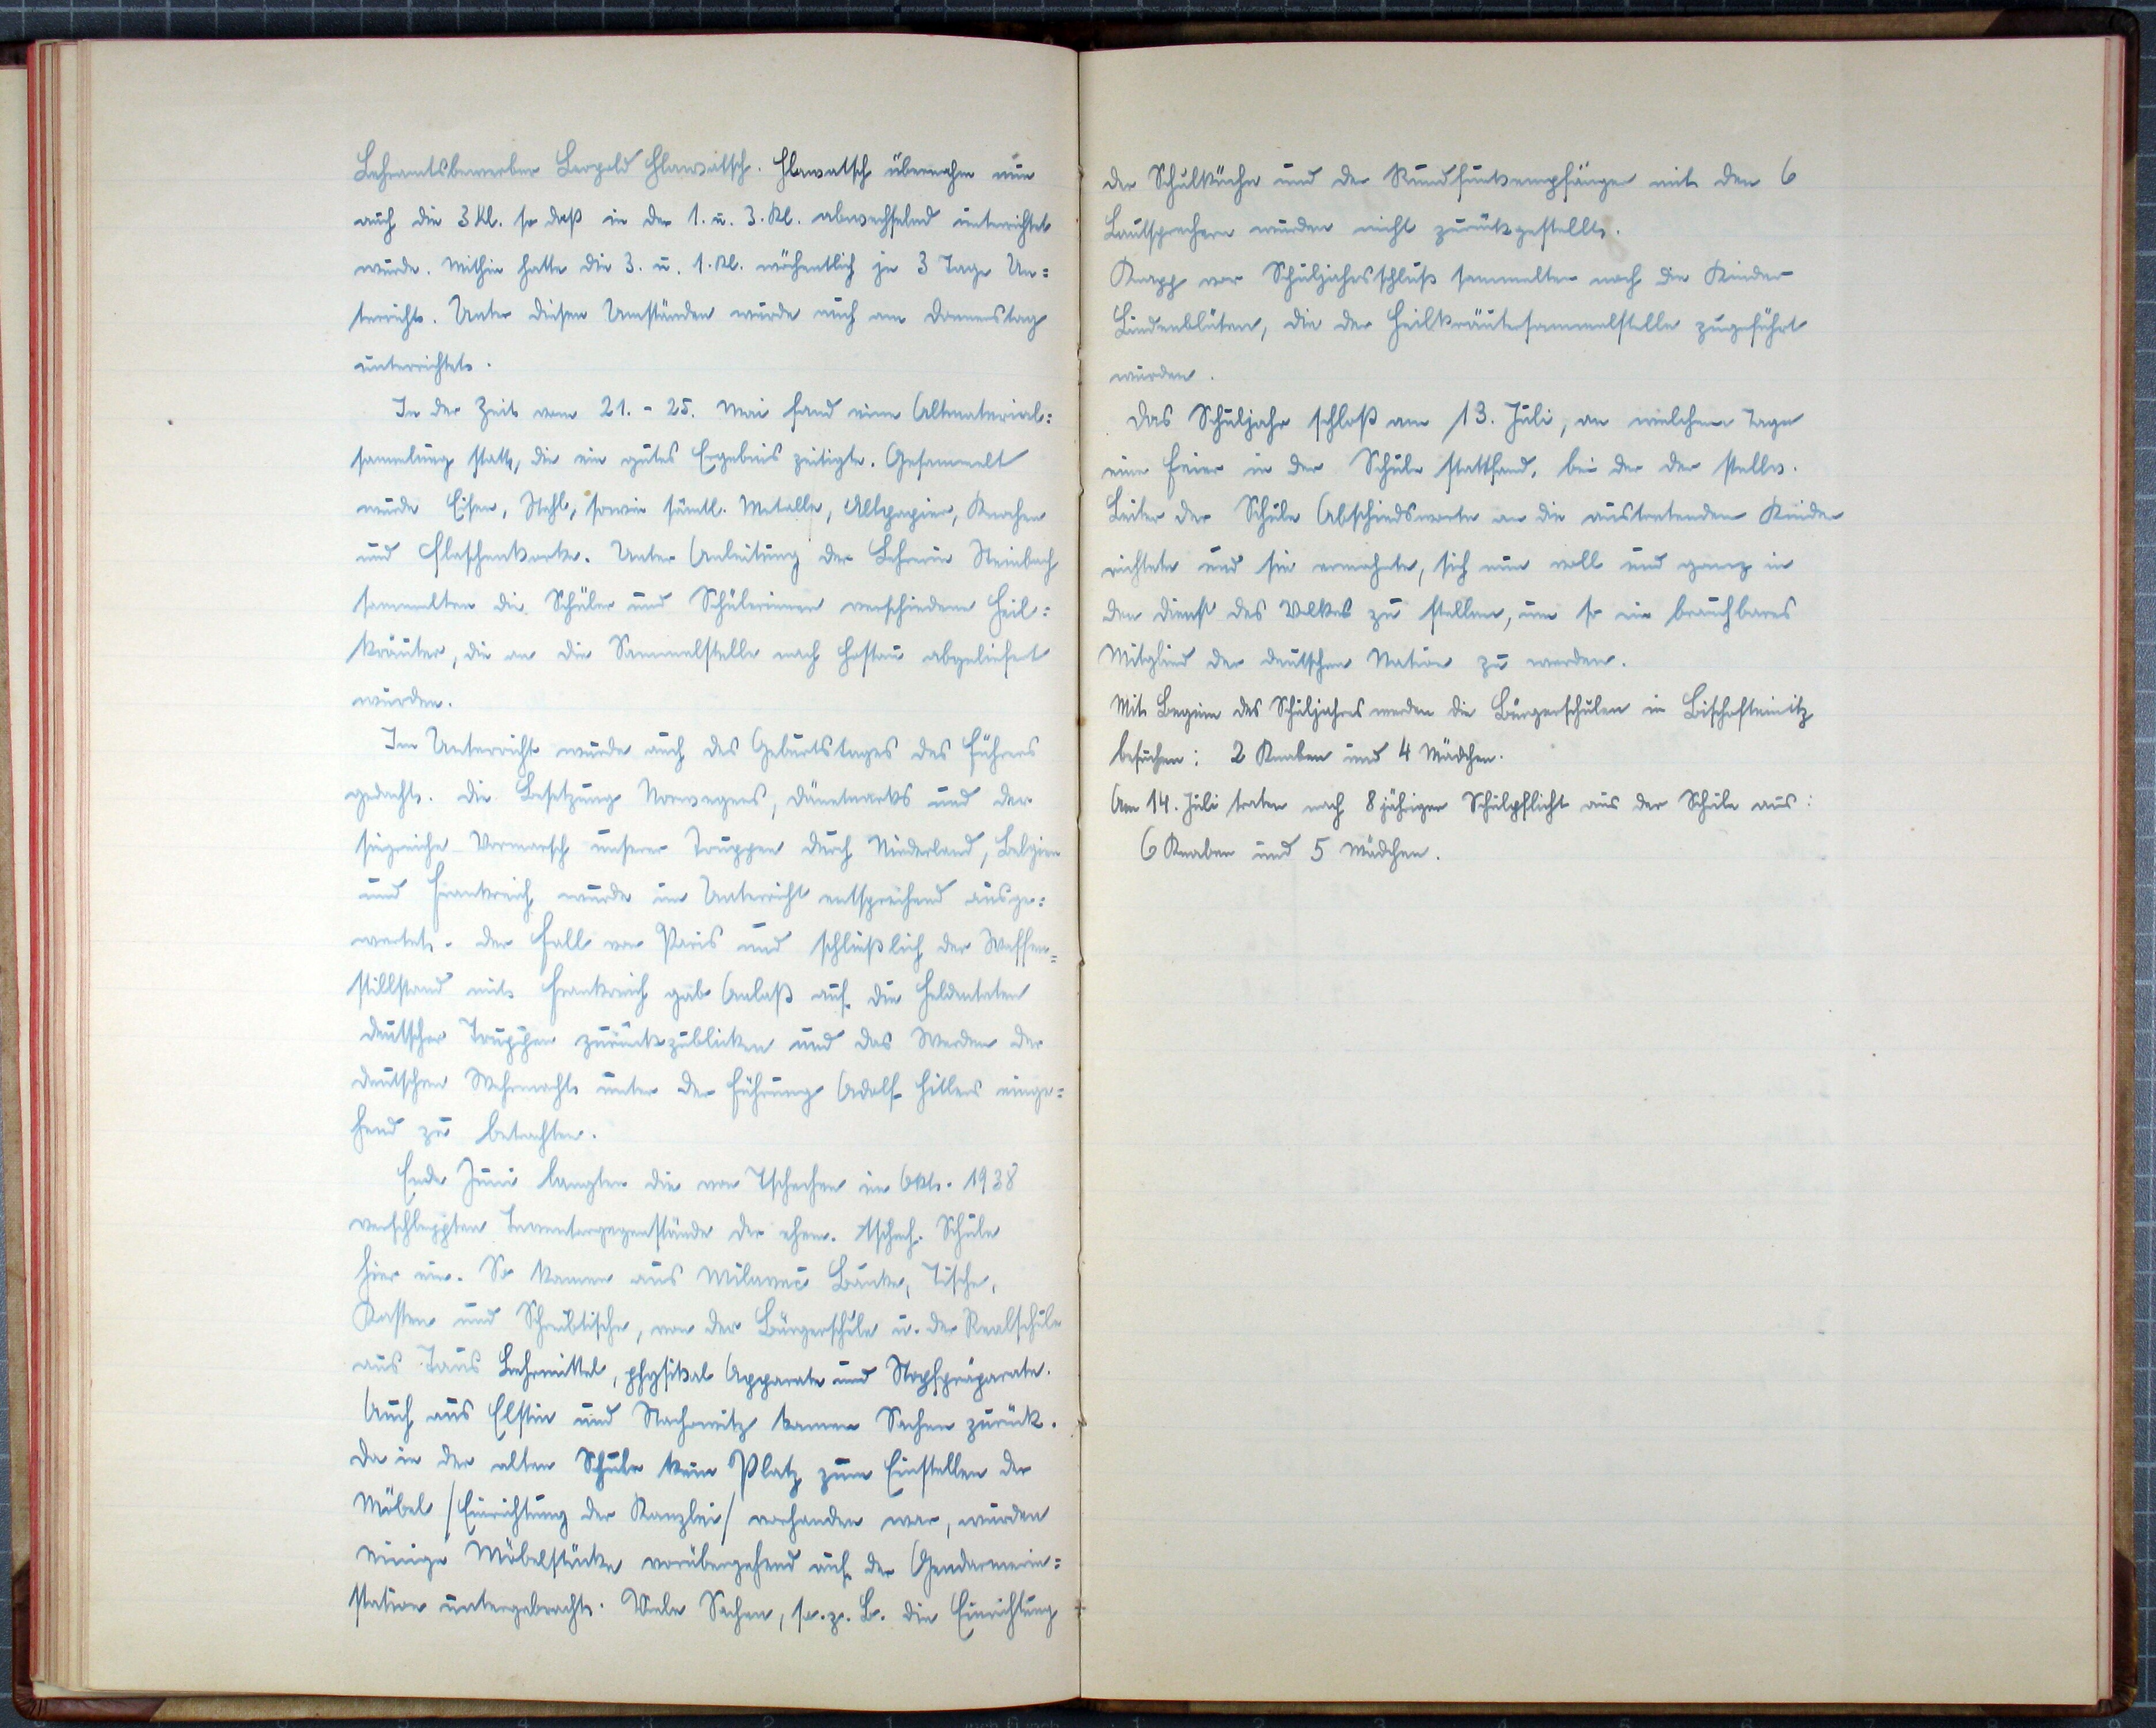 Lehramtsbewerber Leopold Hlawatsch. Hlawatsch übernahm nun
auch die 3 Kl. so daß in der 1. u. 3. Kl. abwechselnd unterrichtet
wurde. Mithin hatte die 3. u. 1. Kl. wöchentlich je 3 Tage Un=
terricht. Unter diesen Umständen wurde auch am Donnerstag
unterrichtet.
In der Zeit vom 21. - 25. Mai fand eine Altmaterial=
sammlung statt, die ein gutes Ergebnis zeitigte. Gesammelt
wurde Eisen, Stahl, sowie sämtl. Metalle, Altpapier, Knochen
und Flaschenkorke. Unter Anleitung der Lehrerin Steinbach
sammelten die Schüler und Schülerinnen verschiedene Heil=
kräuter, die an die Sammelstelle nach Hostau abgeliefert
wurden.
Im Unterricht wurde auch des Geburtstages des Führers
gedacht. Die Besetzung Norwegens, Dänemarks und der
siegreiche Vormarsch unserer Truppen durch Niederland, Belgien
und Frankreich wurde im Unterricht entsprechend ausge=
wertet. Der Fall von Paris und schließlich der Waffen=
stillstand mit Frankreich gab Anlaß auf die Heldentaten
deutscher Truppen zurückzublicken und das Werden der
deutschen Wehrmacht unter der Führung Adolf Hitlers einge=
hend zu betrachten.
Ende Juni langten die von Tschechen im Okt. 1938
verschleppten Inventargegenstände der ehem. tschech. Schule
hier ein. So kamen aus Milaveč Bänke, Tische,
Kasten und Schreibtische, von der Bürgerschule u. der Realschule
aus Taus Lehrmittel, physikal. Apparate und Stopfpräparate.
Auch aus Elstin und Stachowitz kamen Sachen zurück.
Da in der alten Schule kein Platz zum Einstellen der
Möbel /Einrichtung der Kanzlei/ vorhanden war, wurden
einige Möbelstücke vorübergehend auf der Gendarmerie=
station untergebracht. Viele Sachen, so z. B. die Einrichtung
der Schulküche und der Rundfunkempfänger mit den 6
Lautsprechern wurden nicht zurückgestellt.
Knapp vor Schuljahrsschluß sammelten noch die Kinder
Lindenblüten, die der Heilkräutersammelstelle zugeführt
wurden.
Das Schuljahr schloß am 13. Juli, an welchem Tage
eine Feier in der Schule stattfand, bei der der stellv.
Leiter der Schule Abschiedsworte an die austretenden Kinder
richtete und sie ermahnte, sich nun voll und ganz in
den Dienst des Volkes zu stellen, um so ein brauchbares
Mitglied der deutschen Nation zu werden.
Mit Beginn des Schuljahres werden die Bürgerschulen in Bischofteinitz
besuchen: 2 Knaben und 4 Mädchen.
Am 14. Juli traten nach 8 jähriger Schulpflicht aus der Schule aus:
6 Knaben und 5 Mädchen.